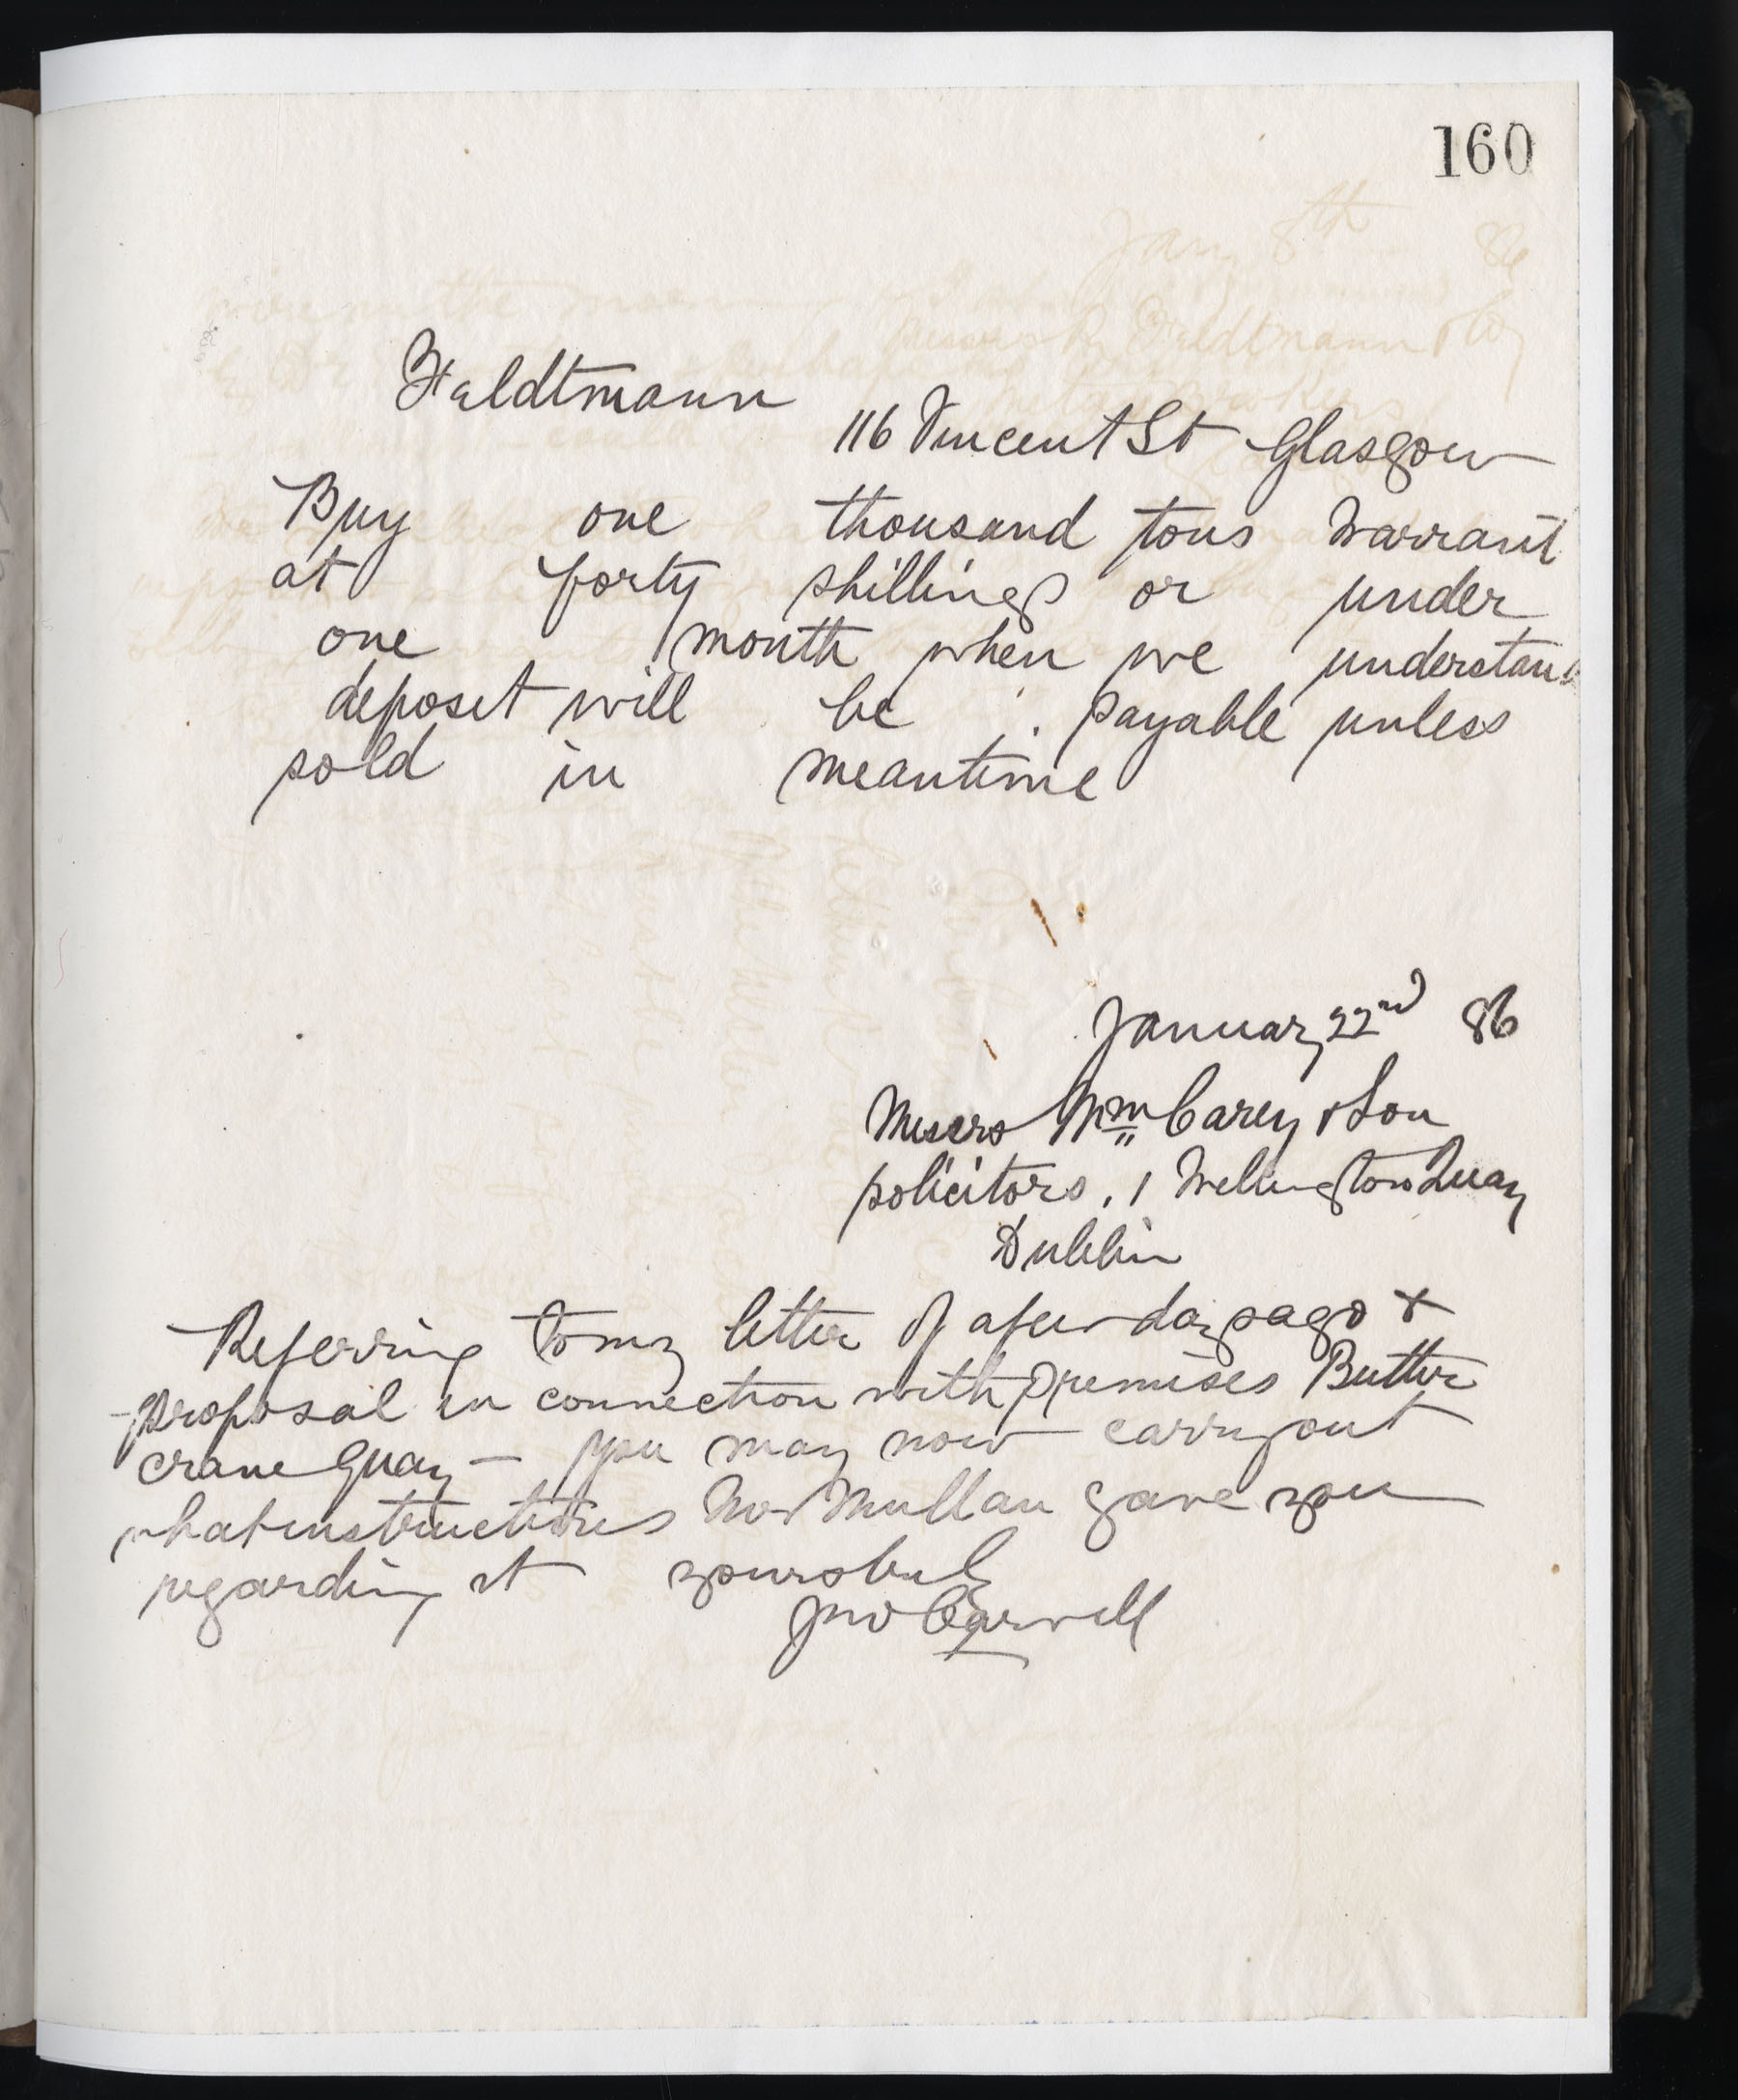 160
Feldtmann
116 Vincent St Glasgow
Buy one thousand tons Warrant
at forty shillings or under
one month when we understand
deposit will be payable unless
sold in meantime
January 22nd 86
Messrs Wm Carey & Son
solicitors, 1 Wellington Quay
Dublin
Referring to my letter of a few days ago &
proposal in connection with premises Butter
crane Quay — you may now carry out
what instructions Mr Mullan gave you
regarding it yours truly
Jno Carvill